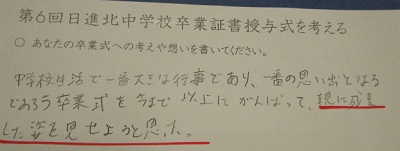 第6回日進北中学校卒業証書授与式を考える
○ あなたの卒業式への考えや想いを書いてください。
中学校生活で一番大きな行事であり、一番の思い出となる
であろう卒業式を今まで以上にがんばって、親に成長
した姿を見せようと思った。